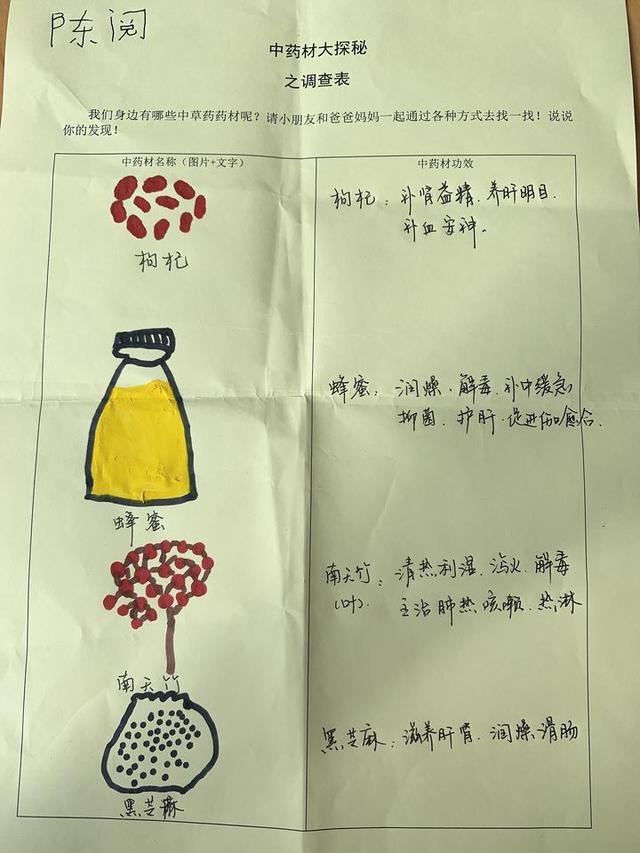 陈阅
中药材大探秘
之调查表
我们身边有哪些中草药药材呢？请小朋友和爸爸妈妈一起通过各种方式去找一找！说说
你的发现！
中药材名称（图片+文字）
中药材功效
枸杞
枸杞：补肾益精、养肝明目、
补血安神。
蜂蜜
蜂蜜：润燥、解毒、补中缓急
抑菌、护肝、促进伤口愈合、
南天竹
南天竹：清热利湿、泻火、解毒
（叶）、主治肺热咳嗽、热淋
黑芝麻
黑芝麻：滋养肝肾、润燥滑肠